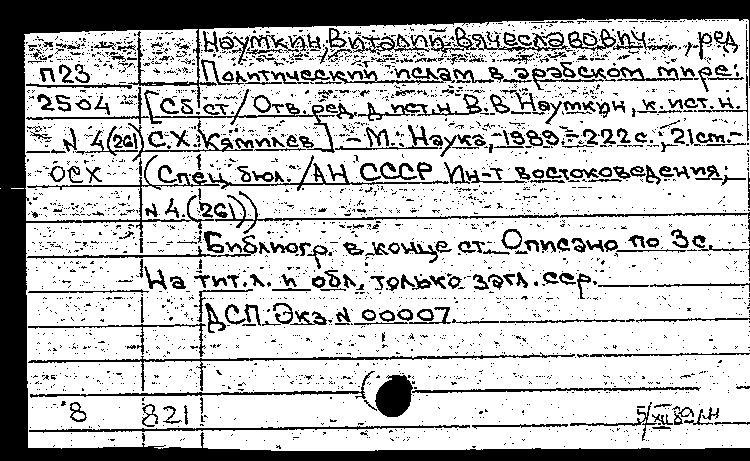 Наумкин, Виталий Вячеславович, ред
П23 Политический ислам в арабском мире:
2504 [Сб.ст./Отв.ред. д.ист.н В.В.Наумкин, к.ист.н.
N 4(261) С.Х.Кямилев] - М.: Наука, 1989.-222с.; 21см.-
ОСХ (Спец.бюл./АН СССР Ин-т востоковедения;
N 4.(261))
Библиогр. в конце ст. Описано по 3с.
На тит.л. и обл. только загл. сер.
ДСП. Экз. N 00007.
8 821 5/XII 89